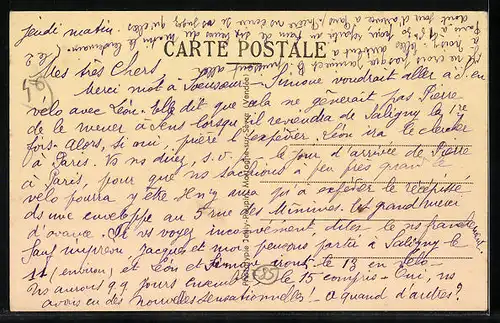 Jeudi matin.
CARTE POSTALE
Mes très Chers
Merci mot à Simone voudrait aller à S. en
velo avec Léon. Elle dit que cela ne gênerait pas Pierre
de le mener à Sens lorsque il reviendra de Saligny la 1re
fois. Alors, si oui, prière l'expédier. Léon ira le chercher
à Paris. Vs ns direz, s.v.p. le jour d'arrivée de Pierre
à Paris, pour que ns sachions à peu près quand le
velo pourra y être. Il n'y aura qu'à expédier le récépissé
ds une enveloppe au 5 rue des Minimes. Et grand merci
d'avance. Si vs voyez inconvénient, dites le ns franchement.
Sauf imprévu Jacques et moi pensons partir à Saligny le
11 (environ) et Léon et Simone iront le 13 en velo
Ns aurons 99 jours ensemble le 15 compris. Oui, ns
avons eu des nouvelles sensationnelles! A quand d'autres?
Phototypie Mortagne-sur-Sèvre (Vendée)